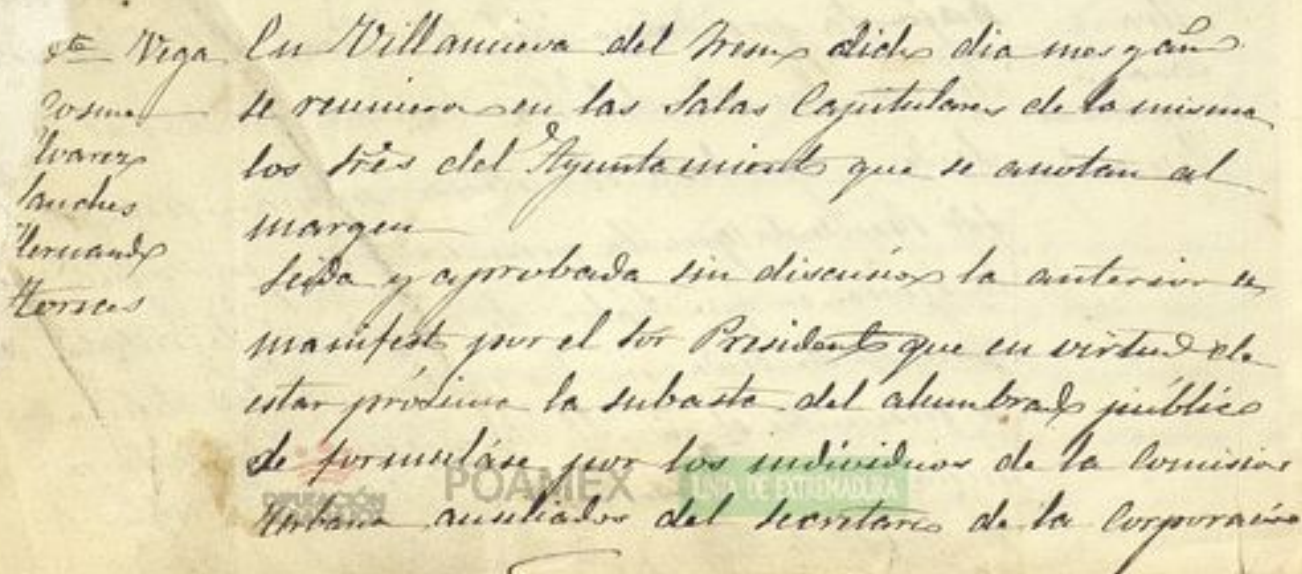 Vega
Cosme
Alvarez
Sanches
Hernandz
Torres
En Villanueva del Fresno dicho dia mes y año
se reunieron en las Salas Capitulares de la misma
los Sres del Ayuntamiento que se anotan al
margen
Leida y aprobada sin discusion la anterior se
manifestó por el Sor Presidente que en virtud de
estar próxima la subasta del alumbrado público
se formuláse por los individuos de la Comision
Urbana ausiliados del Secretario de la Corporación
DIPUTACIÓN
POAMEX
JUNTA DE EXTREMADURA